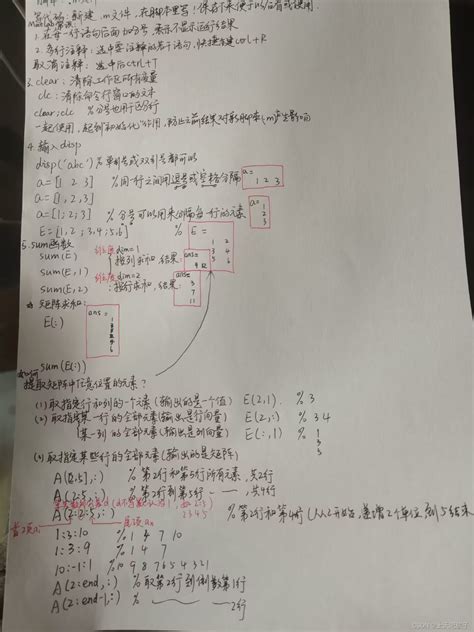 Matlab常识:
写代码:新建.m文件,在脚本里写!保存下来便于以后看或使用.
1.在每一行语句后面加分号,表示不显示运行结果
2.多行注释:选中要注释的若干语句,快捷键ctrl+R
取消注释:选中后ctrl+T
3.clear:清除工作区所有变量
clc:清除命令行窗口的文本
clear;clc %分号也用于区分行
一起使用,起到初始化作用,防止之前结果对新脚本(.m)产生影响
4.输入disp
disp('abc') %单引号或双引号都可以
a=[1 2 3] %同一行之间用逗号或空格分隔 a= 1 2 3
a=[1,2,3]
a=[1;2;3] %分号可以用来分隔每一行的元素 a= 1 2 3
E=[1,2;3,4;5,6] % E= 1 2 3 4 5 6
5.sum函数
sum(E)
sum(E,1) dim=1 :按列求和,结果: ans= 9 12
sum(E,2) dim=2 :按行求和,结果: ans= 3 7 11
矩阵求和:
E(:) ans=
sum(E(:))
提取矩阵中任意位置的元素?
(1)取指定行和列的一个元素(输出的是一个值) E(2,1). %3
(2)取指定某一行的全部元素(输出是行向量) E(2,:) %3 4
某一列的全部元素(输出是列向量) E(:,1) % 1 3 5
(3)取指定某些行的全部元素(输出的是矩阵)
A([2,5],:) %第2行和第5行所有元素,共2行
A(2:5,:) %第2行到第5行 ——,共4行
A(2:2:5,:) %第2行和第4行(从2开始,递增2个单位,到5结束
首项 尾项an
1:3:10 %1 4 7 10
1:3:9 %1 4 7
10:-1:1 %10 9 8 7 6 5 4 3 2 1
A(2:end,:) %取第2行到倒数第1行
A(2:end-1,:) % —— 2行